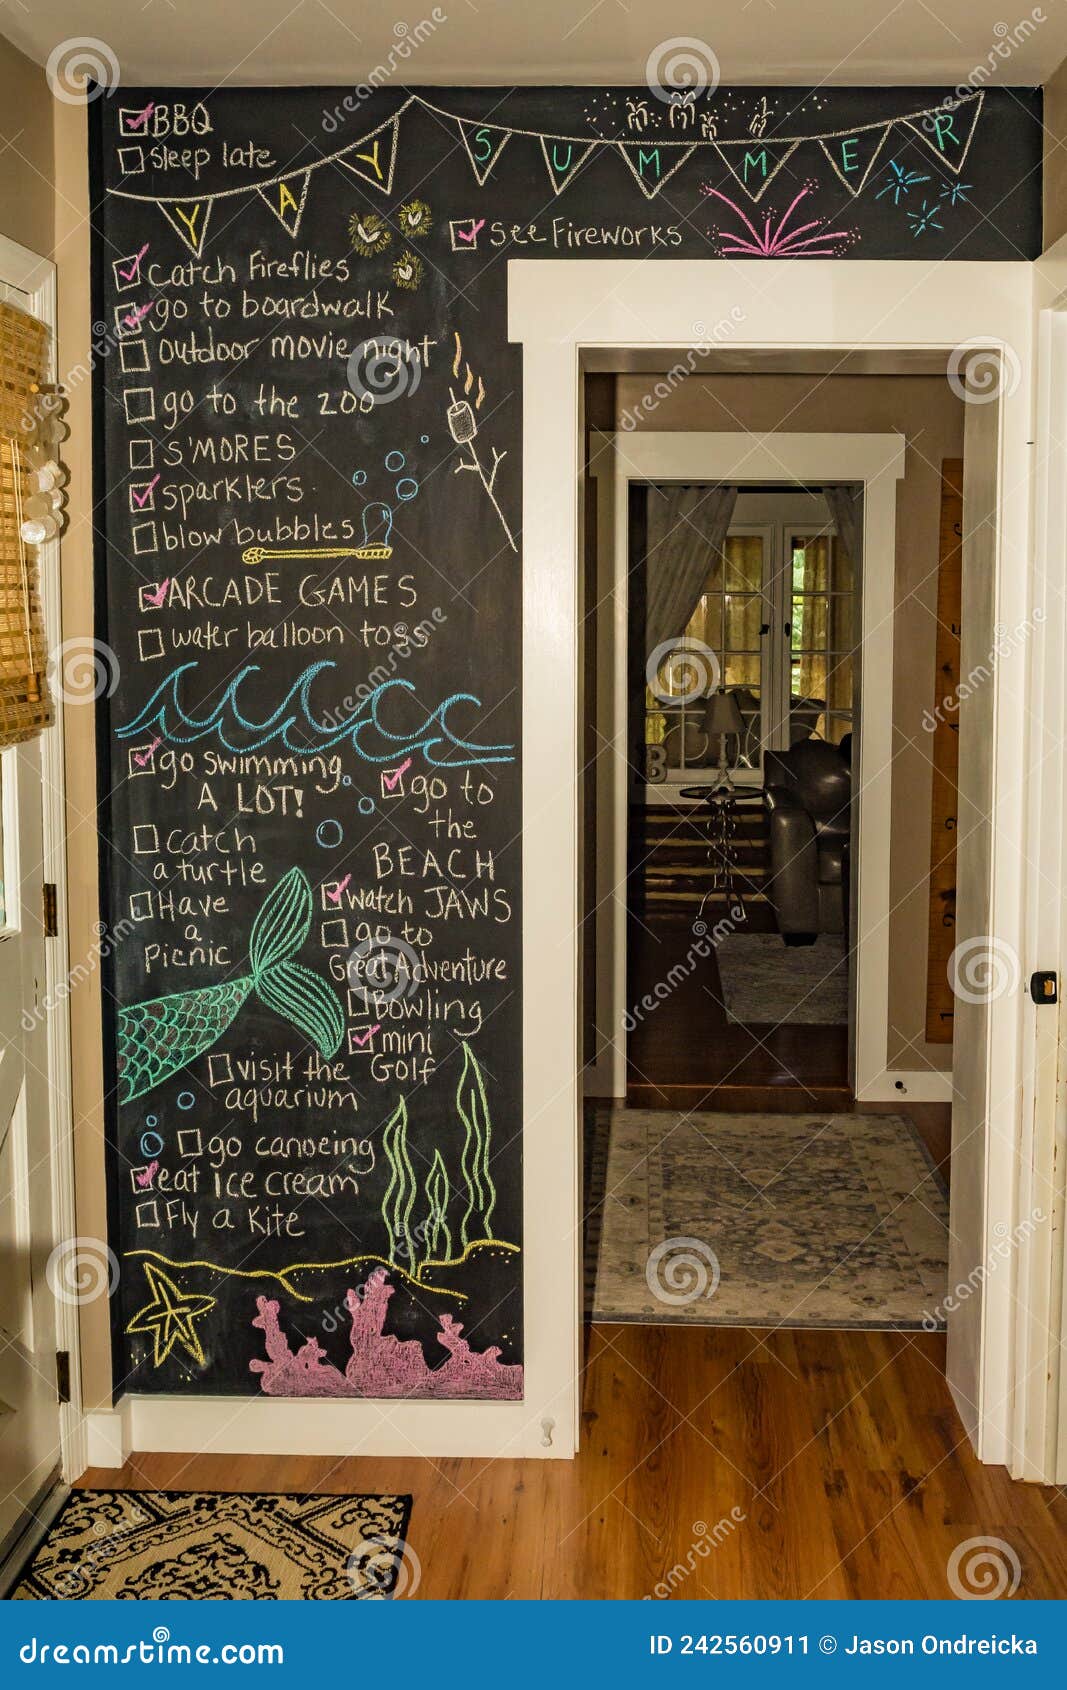 BBQ
Sleep late
YAY SUMMER
See Fireworks
catch fireflies
go to boardwalk
Outdoor movie night
go to the zoo
S'MORES
sparklers
blow bubbles
ARCADE GAMES
water balloon toss
go swimming
A LOT!
go to
the
BEACH
catch
a turtle
watch JAWS
Have
a
Picnic
go to
Great Adventure
Bowling
mini
Golf
visit the
aquarium
go canoeing
eat ice cream
Fly a Kite
dreamstime.com
ID 242560911 © Jason Ondreicka